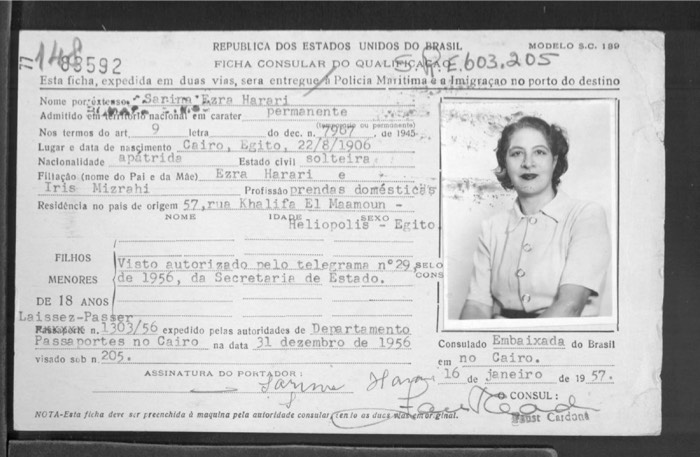 148
77
93592
REPUBLICA DOS ESTADOS UNIDOS DO BRASIL MODELO S.C. 139
FICHA CONSULAR DO QUALIFICAÇÃO 603.205
Esta ficha, expedida em duas vias, sera entregue à Policia Maritima e a Imigraçao no porto do destino
Nome por extenso Sarina Ezra Harari
Admitido em territorio nacional em carater permanente
(temporario ou permanente)
Nos termos do art. 9 letra do dec. n. 7967, de 1945
Lugar e data de nascimento Cairo, Egito, 22/8/1906
Nacionalidade apátrida Estado civil solteira
Filiação (nome do Pai e da Mãe) Ezra Harari e
Iris Mizrahi Profissão prendas domésticas
Residência no pais de origem 57, rua Khalifa El Maamoun -
NOME IDADE SEXO
Heliopolis - Egito.
FILHOS
MENORES
DE 18 ANOS
Visto autorizado pelo telegrama nº 29,
de 1956, da Secretaria de Estado.
SELO
CONS
Laissez-Passer
n. 1303/56 expedido pelas autoridades de Departamento
Passaportes no Cairo na data 31 dezembro de 1956
visado sob n. 205.
ASSINATURA DO PORTADOR:
Sarina Harari
Consulado Embaixada do Brasil
em no Cairo.
16 de janeiro de 1957.
O CONSUL:
Faust Cardona
NOTA-Esta ficha deve ser preenchida à maquina pela autoridade consular, tento as duas vias em original.